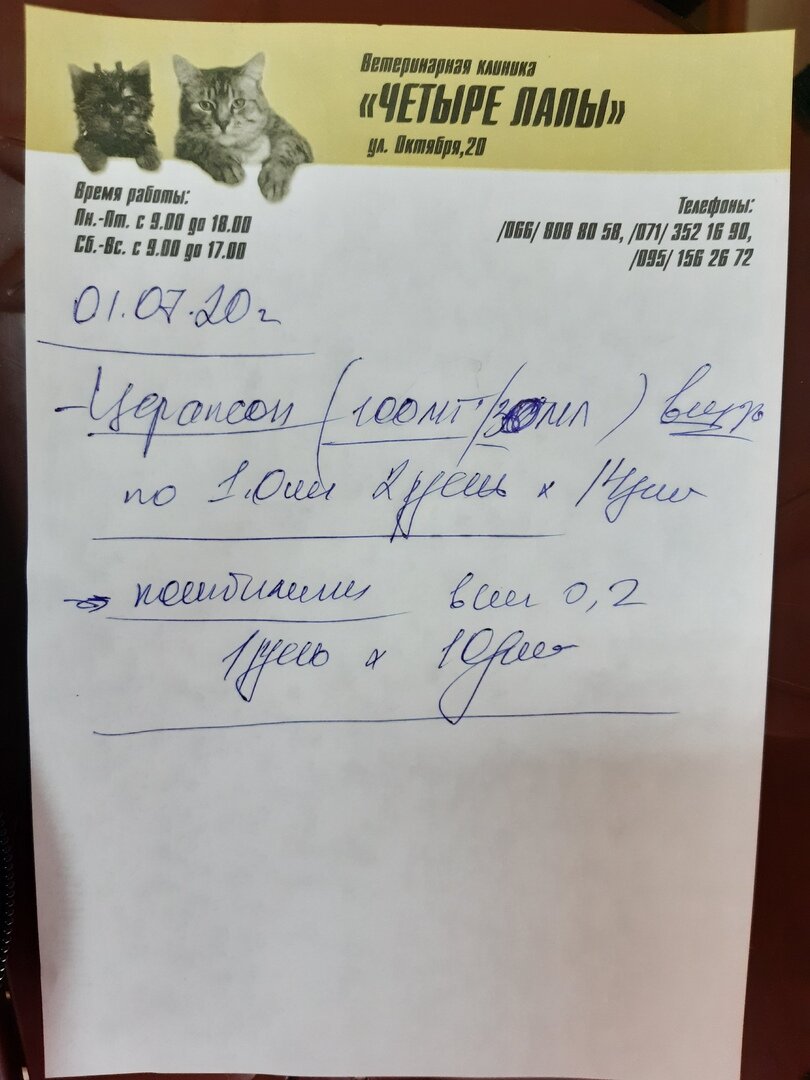 Ветеринарная клиника
«ЧЕТЫРЕ ЛАПЫ»
ул. Октября,20
Время работы:
Пн.-Пт. с 9.00 до 18.00
Сб.-Вс. с 9.00 до 17.00
Телефоны:
/066/ 808 80 58, /071/ 352 16 90,
/095/ 156 26 72
01.07.20г
(100мг/ мл)
по 1.0мл 2 р/день х 14дней
0,2
1 р/день х 10дней